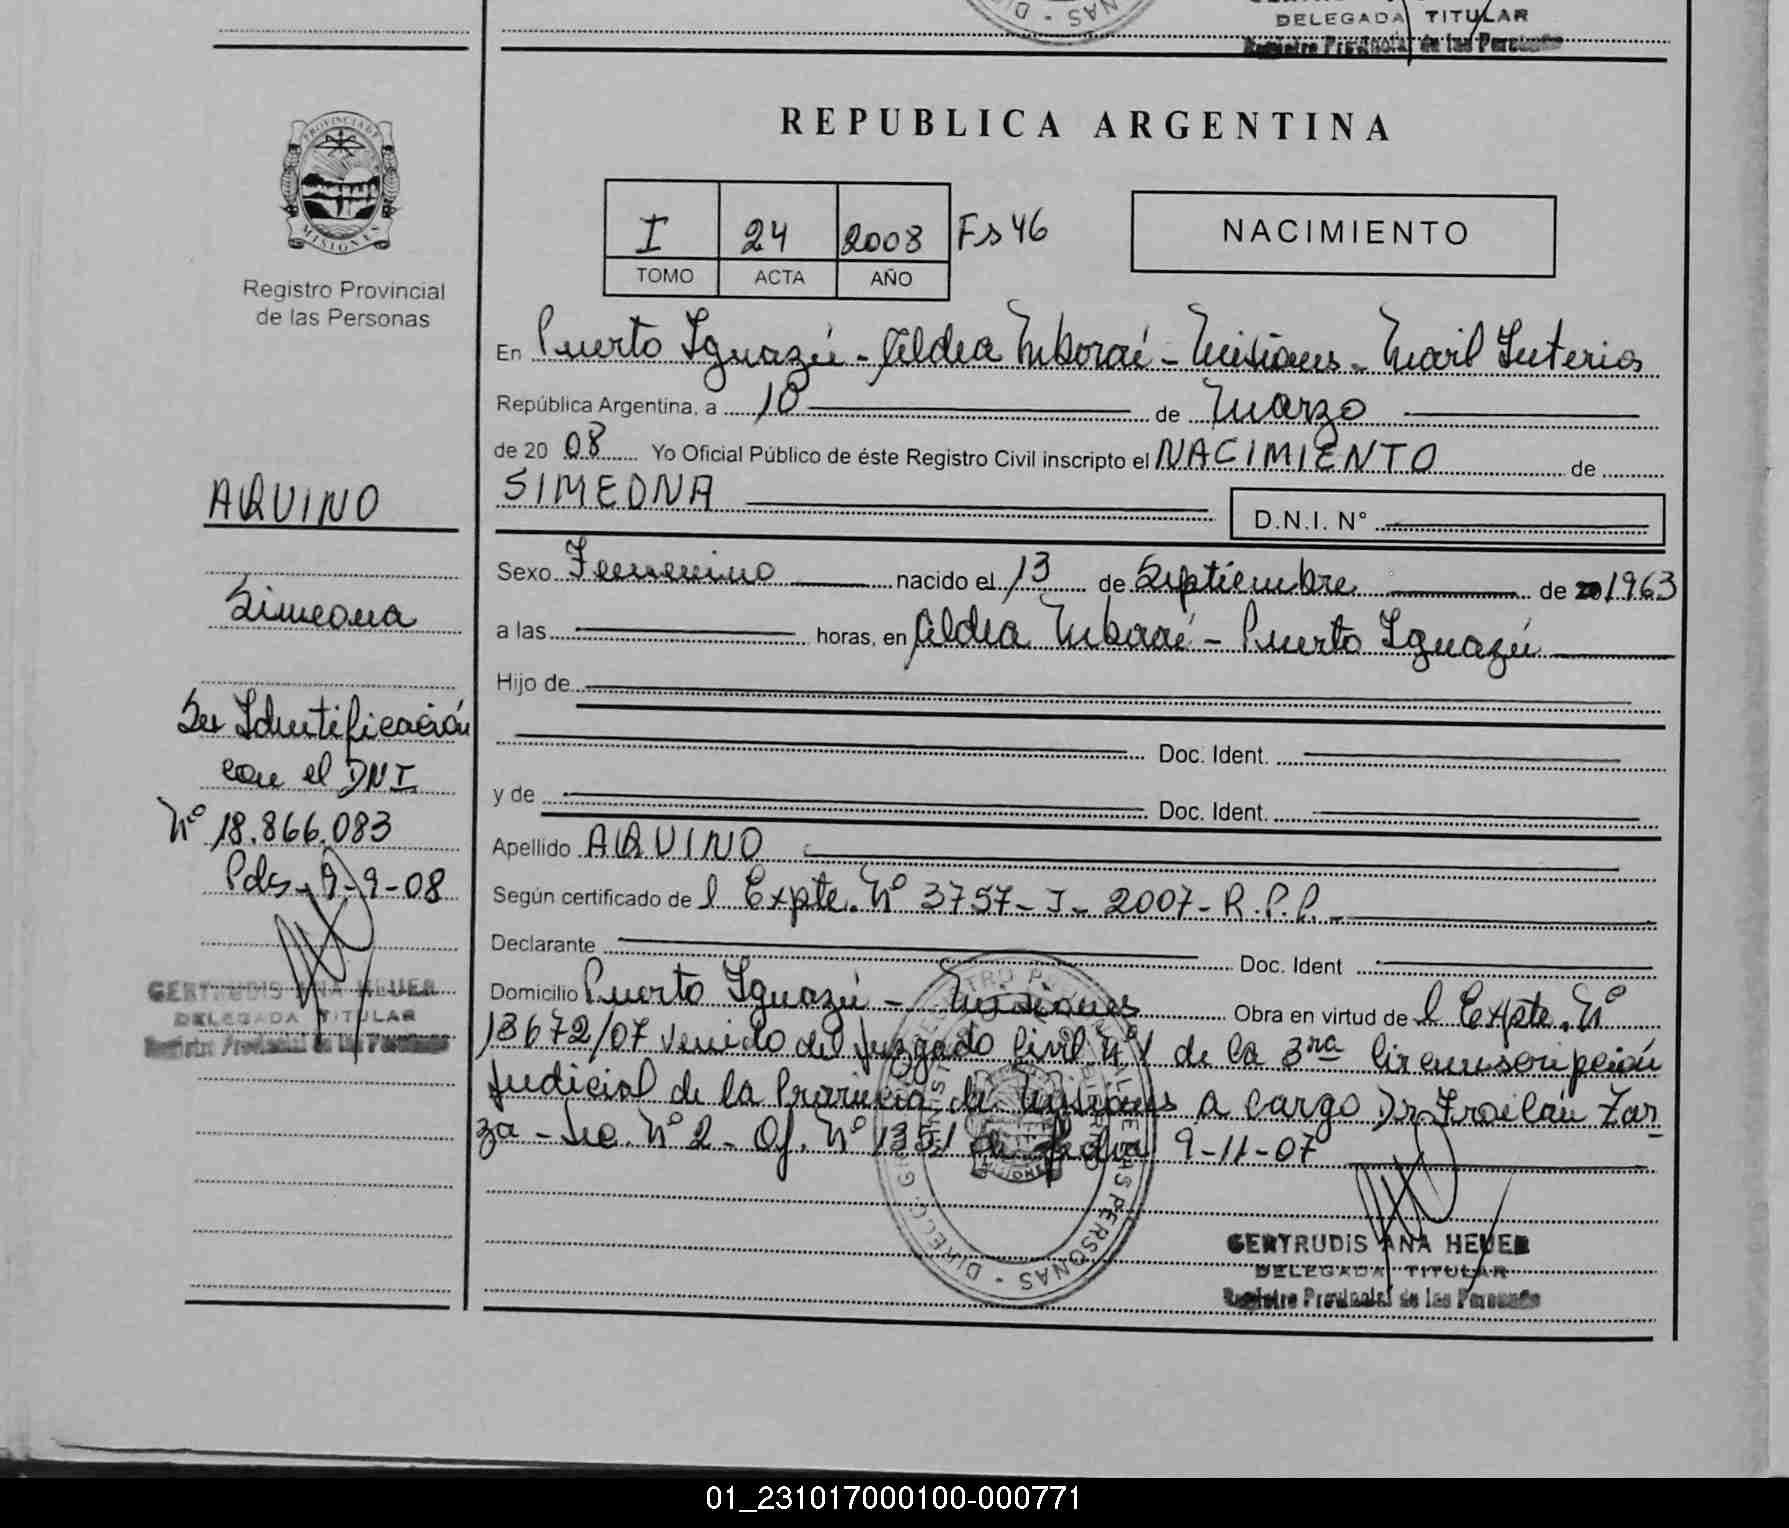 DELEGADA TITULAR
Registro Provincial de las Personas
REPUBLICA ARGENTINA
PROVINCIA DE
MISIONES
Registro Provincial
de las Personas
I 24 2008 Fs 46
TOMO ACTA AÑO
NACIMIENTO
En Puerto Iguazú - Aldea Mbororé - Misiones - Móvil Interior
República Argentina, a 10 de Marzo
de 20 08 Yo Oficial Público de éste Registro Civil inscripto el NACIMIENTO de
SIMEONA D.N.I. N°
Sexo Femenino nacido el 13 de Septiembre de 20 1963
a las horas, en Aldea Mbororé - Puerto Iguazú
Hijo de
Doc. Ident.
y de Doc. Ident.
Apellido AQUINO
Según certificado de l Expte. N° 3757 - I - 2007 - R.P.P.
Declarante Doc. Ident
Domicilio Puerto Iguazú - Misiones Obra en virtud de l Expte. N°
13672/07 venido del Juzgado Civil N° 1 de la 3ra Circunscripción
Judicial de la Provincia de Misiones a cargo Dr. Froilán Zar
za - Sec. N° 2 - Of. N° 1351 de fecha 9-11-07
GERTRUDIS ANA HEUER
DELEGADA TITULAR
Registro Provincial de las Personas
AQUINO
Simeona
Su Identificación
con el DNI
N° 18.866.083
Pds. 9-9-08
GERTRUDIS ANA HEUER
DELEGADA TITULAR
Registro Provincial de las Personas
01_231017000100-000771